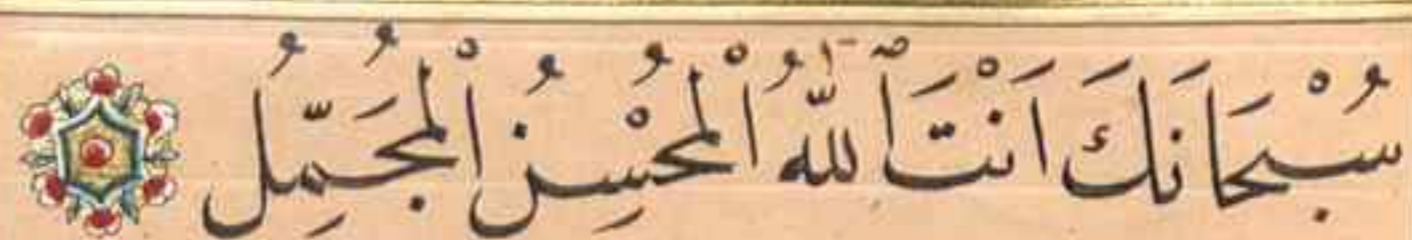 سُبْحَانَكَ اَنْتَ اللّٰهُ الْمُحْسِنُ الْمُجَمِّلُ